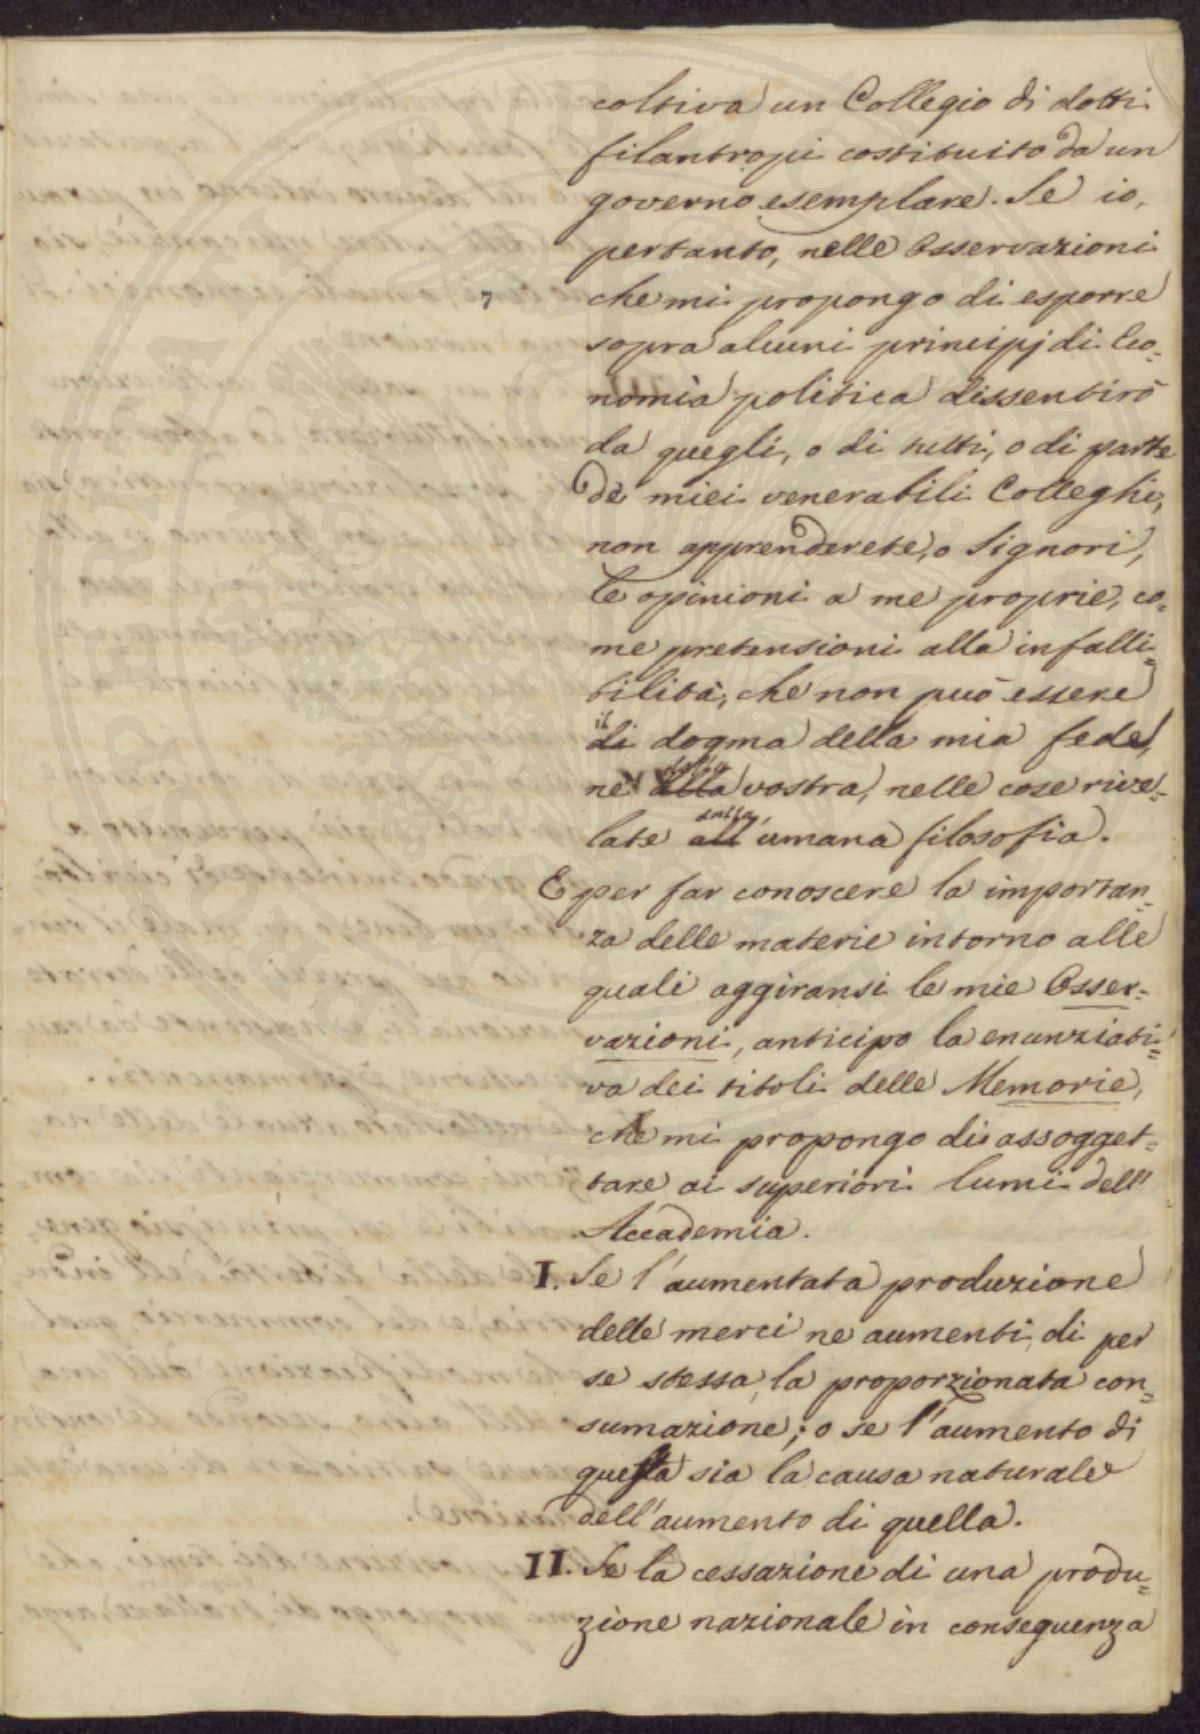 coltiva un Collegio di dotti
filantropi costituito da un
governo esemplare. Se io,
pertanto, nelle Osservazioni
che mi propongo di esporre
sopra alcuni principj di Eco=
nomia politica dissentirò
da quegli, o di tutti, o di parte
de miei venerabili Colleghi,
non apprenderete, o Signori,
le opinioni a me proprie, co=
me pretensioni alla infalli=
bilità, che non può essere
il
di dogma della mia fede,
della
nè alla vostra, nelle cose rive=
dalla
late all' umana filosofia.
E per far conoscere la importan=
za delle materie intorno alle
quali aggiransi le mie Osser=
vazioni, anticipo la enunziati=
va dei titoli delle Memorie,
che mi propongo di assogget=
tare ai superiori lumi dell'
Accademia.
I. Se l'aumentata produzione
delle merci ne aumenti, di per
se stessa, la proporzionata con=
sumazione; o se l'aumento di
questa sia la causa naturale
dell'aumento di quella.
II. Se la cessazione di una produ=
zione nazionale in conseguenza